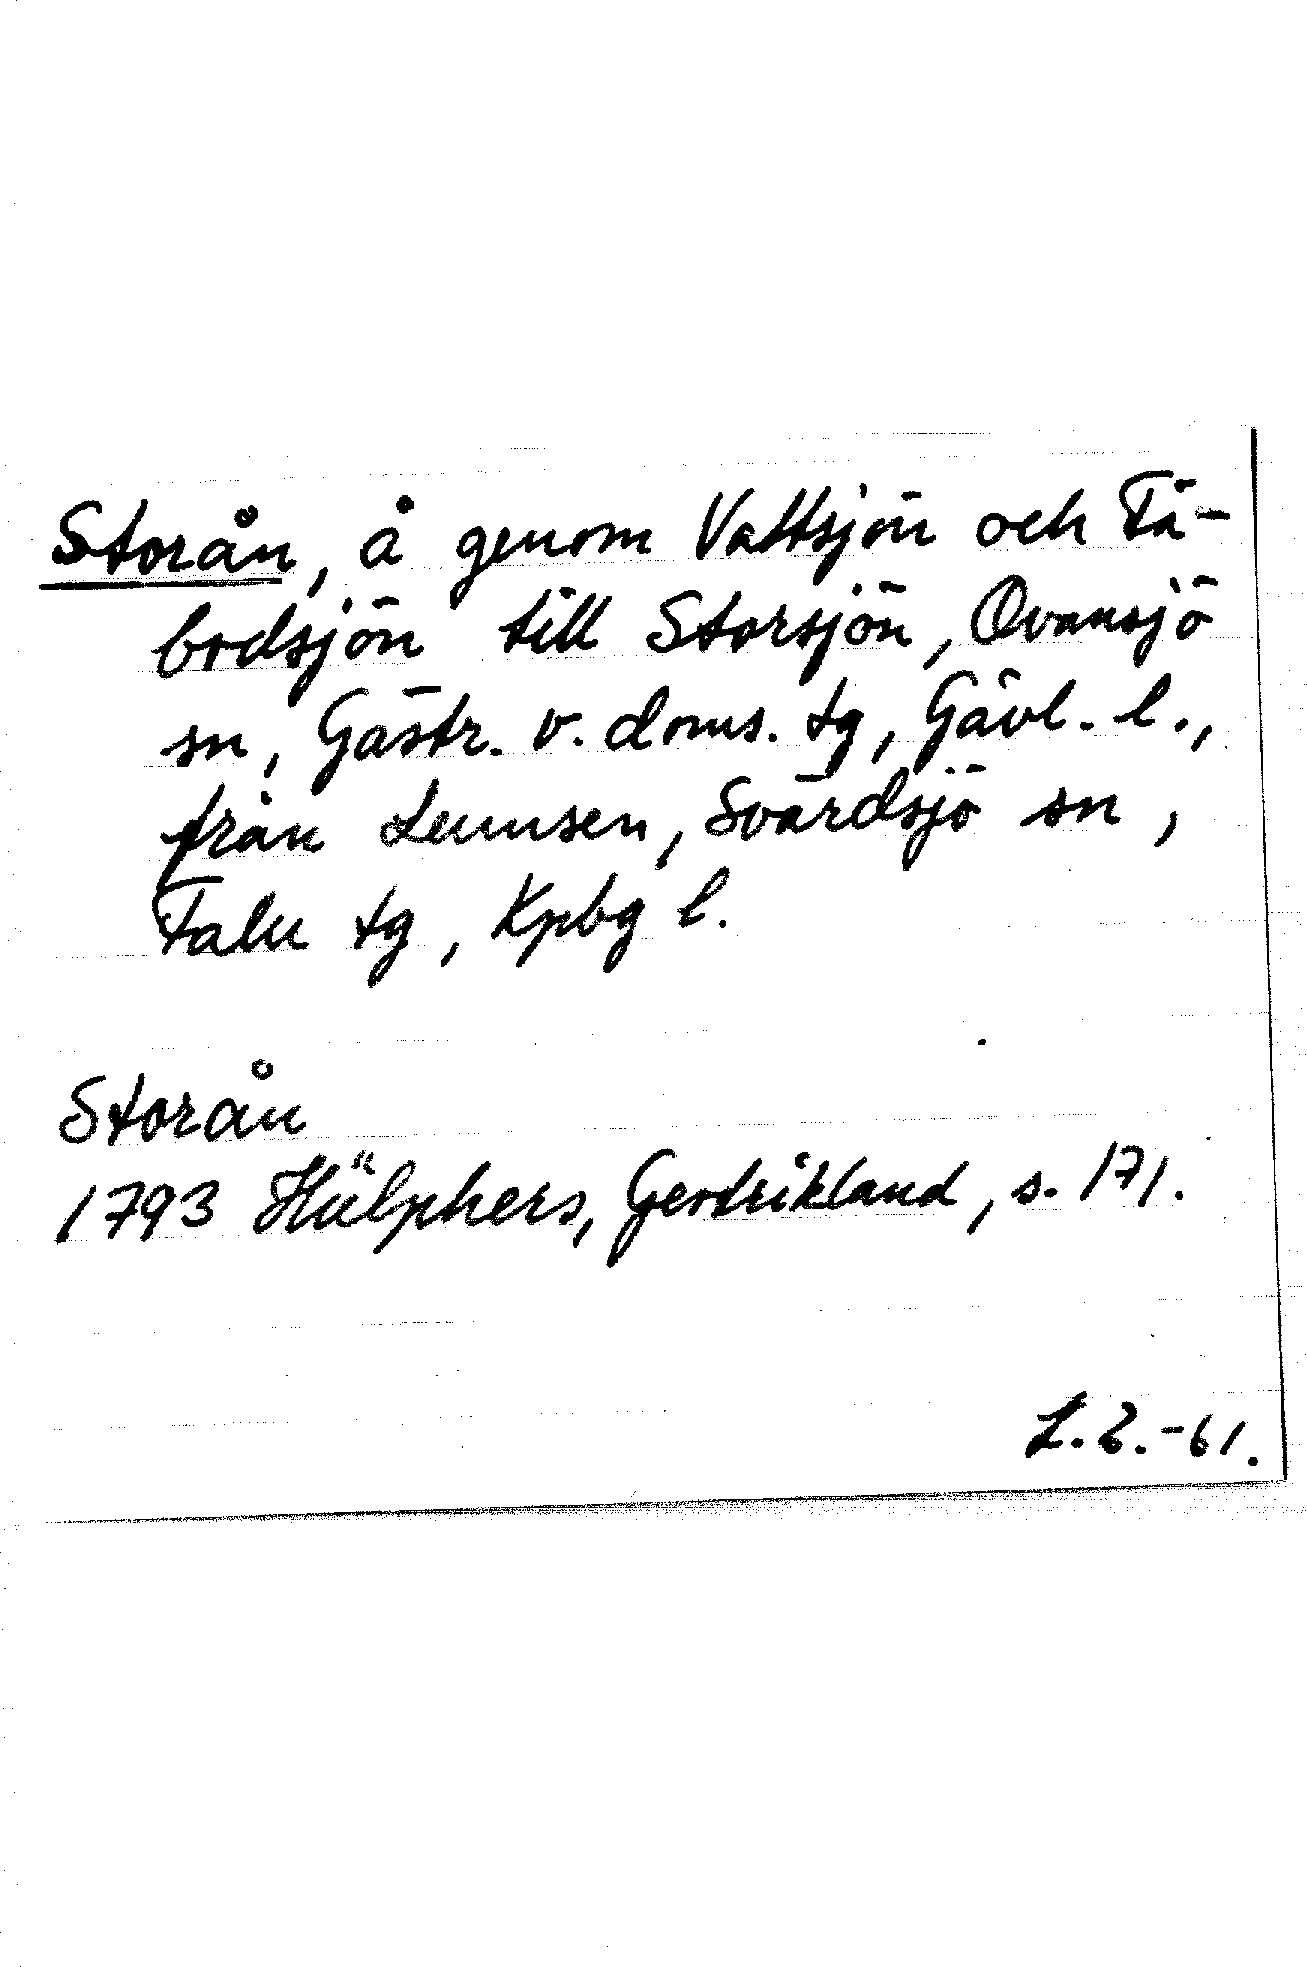 Storån, å genom Vattsjön och Fä-
bodsjön till Storsjön, Ovansjö
sn, Gästr. v. doms. tg, Gävl. l.,
från Lumsen, Svärdsjö sn,
Falu tg, Kpbg l.
Storån
1793 Hülphers, Gestrikland, s. 171.
L. Z. -61.